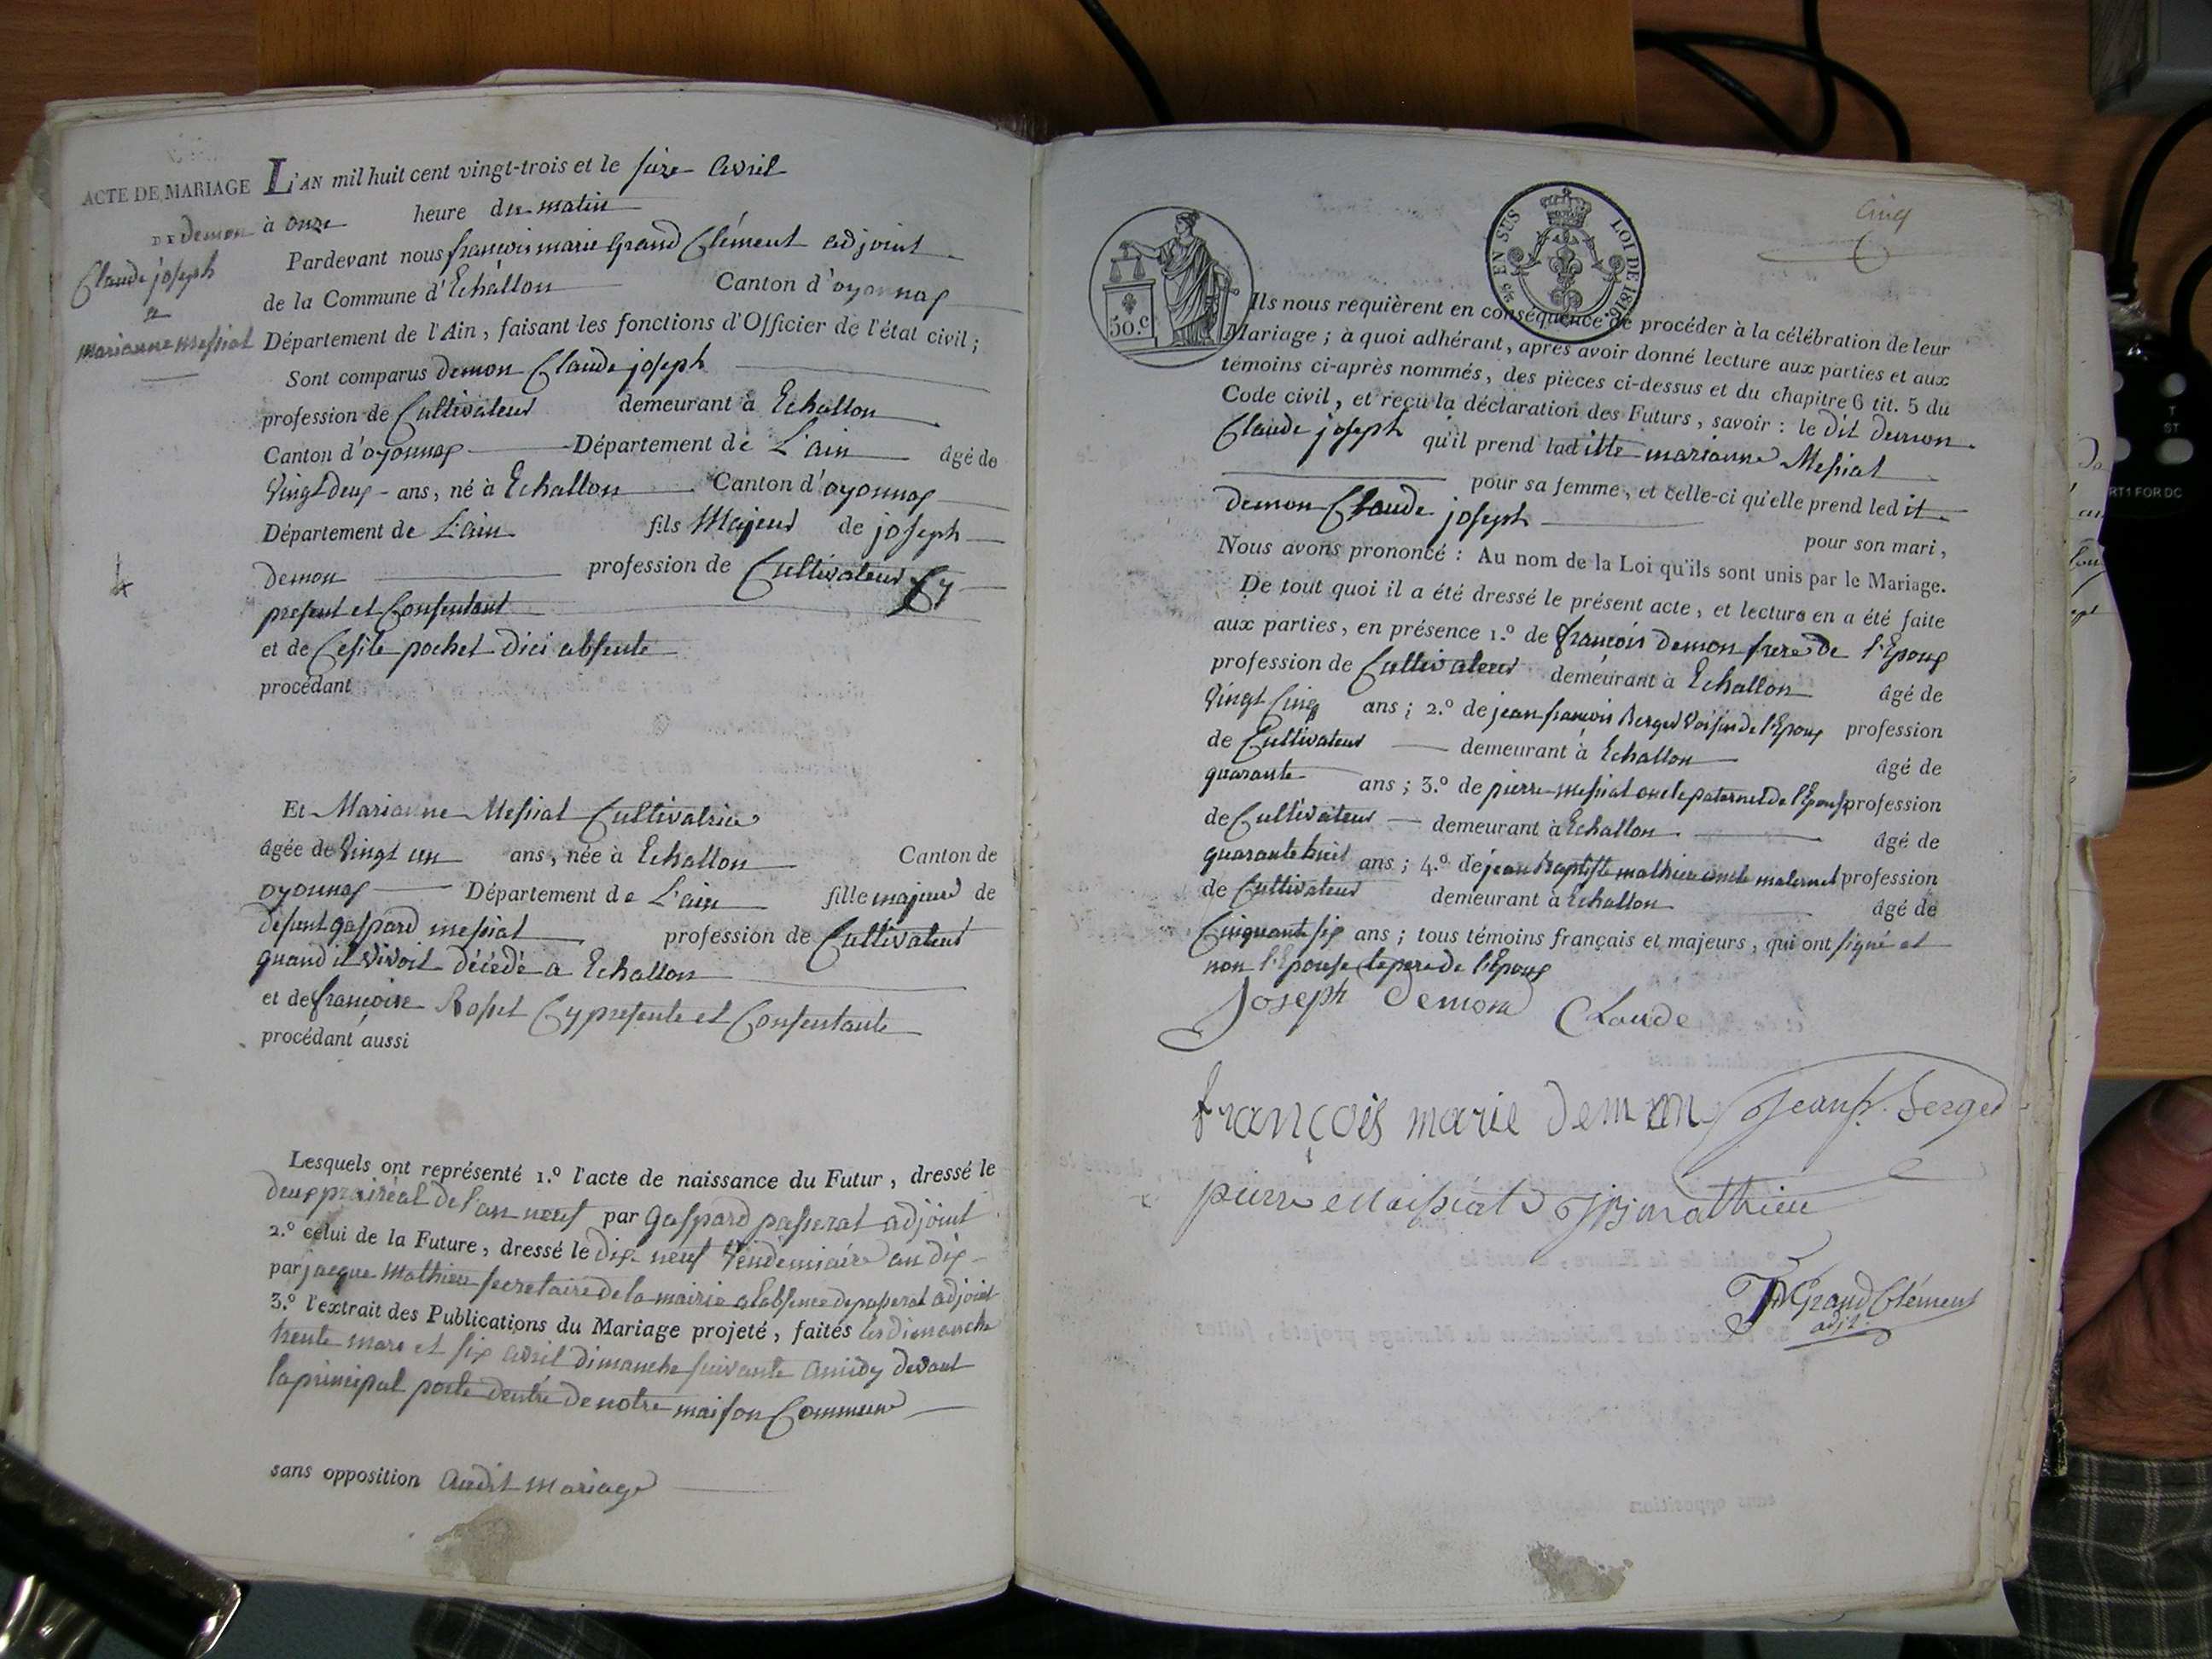 ACTE DE MARIAGE
DE demon
Claude joseph
et
marianne Messiat
L'AN mil huit cent vingt-trois et le seize avril
à onze heure du matin
Pardevant nous françois marie Grand Clément adjoint
de la Commune d'Echallon Canton d'oyonnax
Département de l'Ain, faisant les fonctions d'Officier de l'état civil ;
Sont comparus demon Claude joseph
profession de Cultivateur demeurant à Echallon
Canton d'oyonnax Département de L'ain âgé de
vingt deux ans, né à Echallon Canton d'oyonnax
Département de L'ain fils Majeur de joseph
demon profession de Cultivateur Cy
present et Consentant
et de Cesile pochet dici absente
procédant
Et Marianne Messiat Cultivatrice
âgée de vingt un ans, née à Echallon Canton de
oyonnax Département de L'ain fille majeure de
defunt gaspard messiat profession de Cultivateur
quand il vivoit décédé a Echallon
et de françoise Rosset Cy presente et Consentante
procédant aussi
Lesquels ont représenté 1.º l'acte de naissance du Futur, dressé le
deux prairéal de l'an neuf par Gaspard passerat adjoint
2.º celui de la Future, dressé le dix neuf vendemiaire an dix
par jacque Mathieu secretaire de la mairie a labsence de passerat adjoint
3.º l'extrait des Publications du Mariage projeté, faites les dimanche
trente mars et six avril dimanche suivante a midy devant
la principal porte dentré de notre maison Commune
sans opposition audit mariage
50.c
EN SUS
LOI DE 1816
Cinq
Ils nous requièrent en conséquence de procéder à la célébration de leur
Mariage ; à quoi adhérant, après avoir donné lecture aux parties et aux
témoins ci-après nommés, des pièces ci-dessus et du chapitre 6 tit. 5 du
Code civil, et reçu la déclaration des Futurs, savoir : le dit demon
Claude joseph qu'il prend laditte marianne Messiat
pour sa femme, et celle-ci qu'elle prend ledit
demon Claude joseph pour son mari,
Nous avons prononcé : Au nom de la Loi qu'ils sont unis par le Mariage.
De tout quoi il a été dressé le présent acte, et lecture en a été faite
aux parties, en présence 1.º de françois demon frere de l'Epoux
profession de Cultivateur demeurant à Echallon âgé de
vingt Cinq ans ; 2.º de jean françois Berger voisin de l'Epoux profession
de Cultivateur demeurant à Echallon âgé de
quarante ans ; 3.º de pierre messiat oncle paternel de l'Epouse profession
de Cultivateur demeurant à Echallon âgé de
quarante huit ans ; 4.º de jean Baptiste mathieu oncle maternel profession
de Cultivateur demeurant à Echallon âgé de
Cinquante six ans ; tous témoins français et majeurs, qui ont signé et
non l'Epouse le pere de l'Epoux
Joseph demond Claude
françois marie demon Jean f. Berger
pierre Maissiat J B mathieu
Grand Clément
adjt.